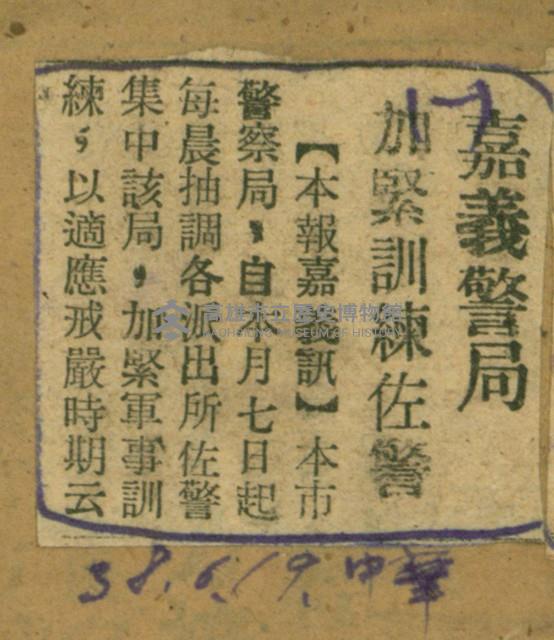 嘉義警局
加緊訓練佐警
【本報嘉義訊】本市
警察局，自本月七日起
每晨抽調各派出所佐警
集中該局，加緊軍事訓
練，以適應戒嚴時期云
38.6.19.中華
高雄市立歷史博物館
KAOHSIUNG MUSEUM OF HISTORY